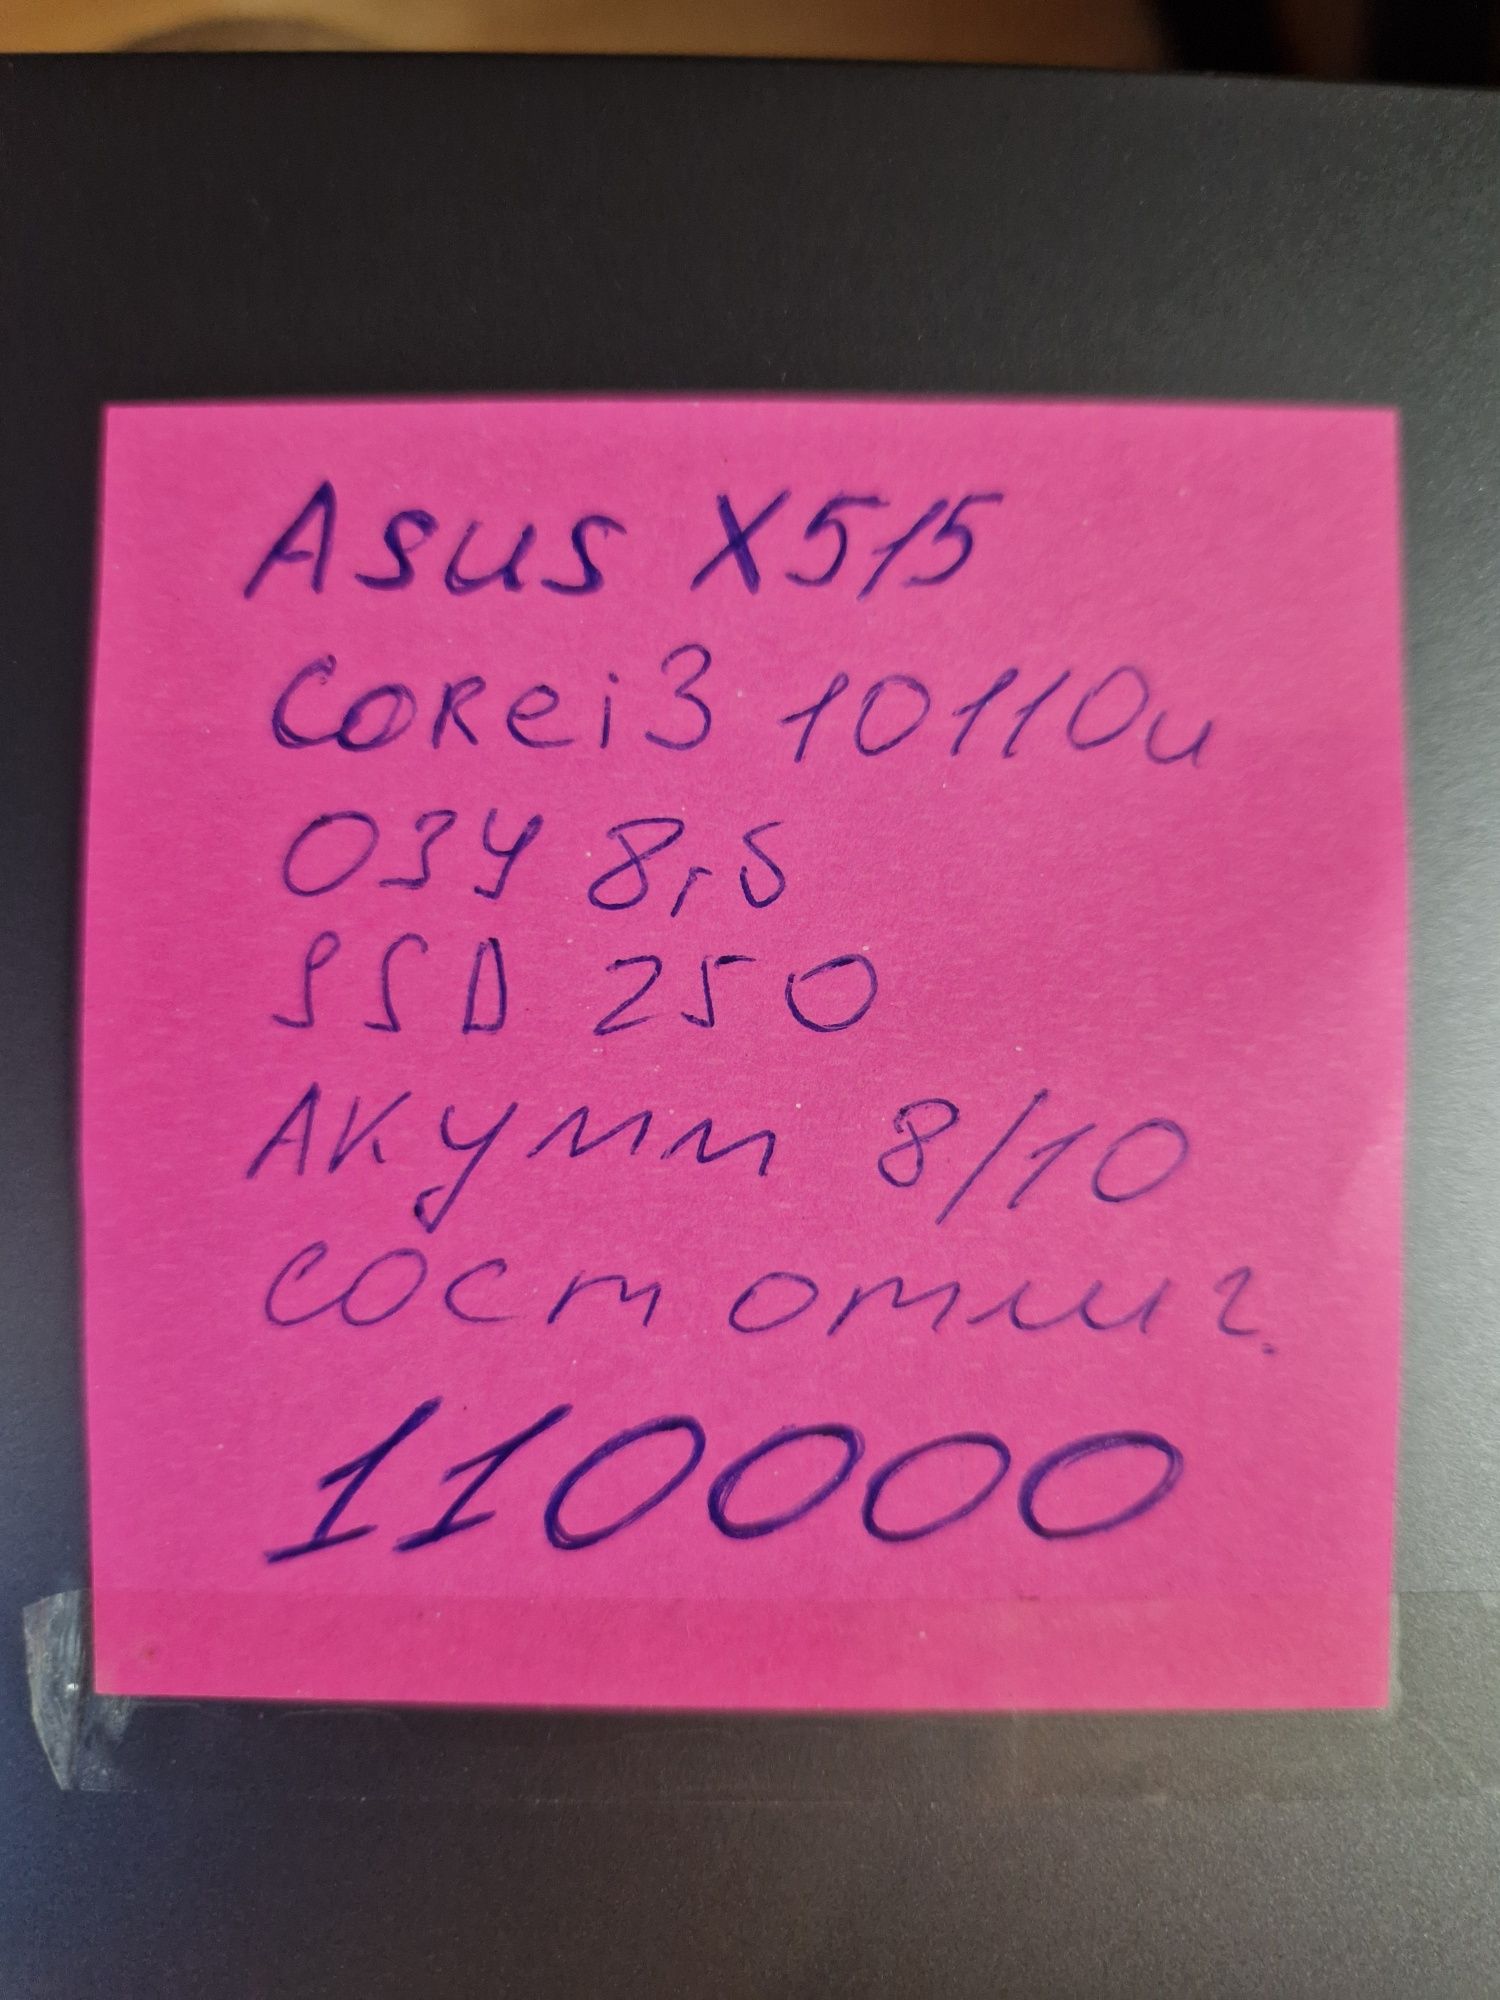 Asus X515
Core i3 10110u
ОЗУ 8,5
SSD 250
Акумм 8/10
сост отлич.
110000